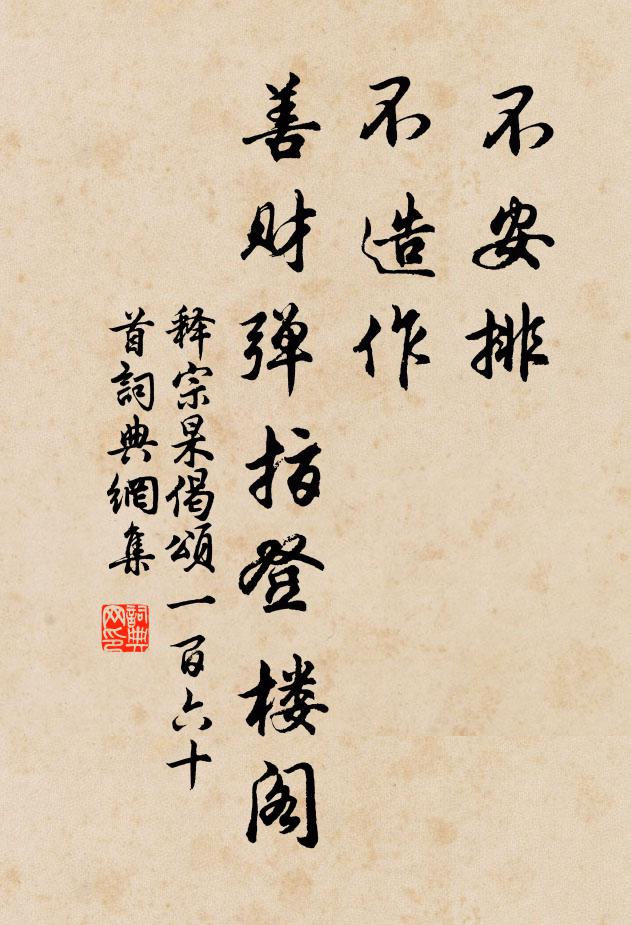 不安排
不造作
善财弹指登楼阁
释宗杲偈頌一百六十
首詞典網集
詞典
网印